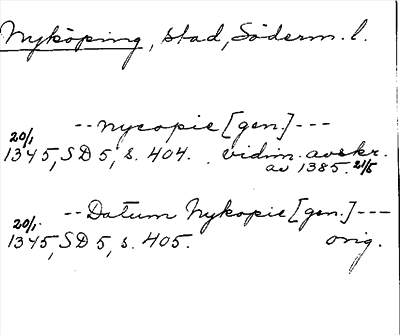 Nyköping, stad, Söderm. l.
--nycopie [gen.]---
20/1
1345, SD 5, s. 404. vidim. avskr.
av 1385. 21/5
--Datum Nykopie [gen.]---
20/1.
1345, SD 5, s. 405. orig.